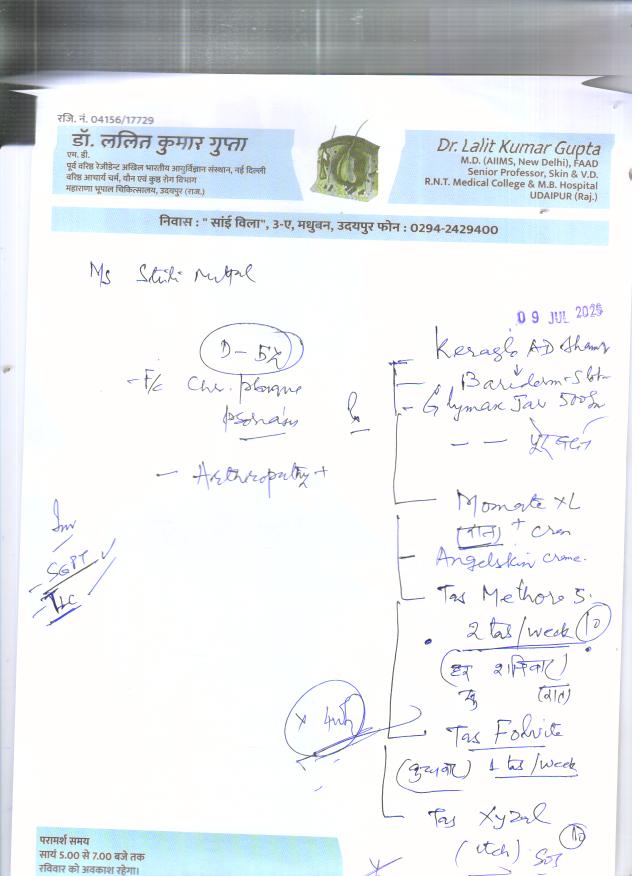 रजि. नं. 04156/17729
डॉ. ललित कुमार गुप्ता
एम. डी.
पूर्व वरिष्ठ रेजीडेन्ट अखिल भारतीय आयुर्विज्ञान संस्थान, नई दिल्ली
वरिष्ठ आचार्य चर्म, यौन एवं कुष्ठ रोग विभाग
महाराणा भूपाल चिकित्सालय, उदयपुर (राज.)
Dr. Lalit Kumar Gupta
M.D. (AIIMS, New Delhi), FAAD
Senior Professor, Skin & V.D.
R.N.T. Medical College & M.B. Hospital
UDAIPUR (Raj.)
निवास : " सांई विला", 3-ए, मधुबन, उदयपुर फोन : 0294-2429400
Ms
09 JUL 2025
F/c Chr. plaque
psoriasis
- Arthropathy +
Inv
- SGPT ✓
- TLC
Keraglo AD
Bariderm-S
- Glymax Jar 500
Momate XL
(रात) +
- Angelskin creme.
Tab Methore 5.
2 tab/week (10)
(हर शनिवार)
(रात)
Tab Folvite
(बुधवार) 1 tab/week
Tab Xyzal
(itch) SOS (10)
परामर्श समय
सायं 5.00 से 7.00 बजे तक
रविवार को अवकाश रहेगा।